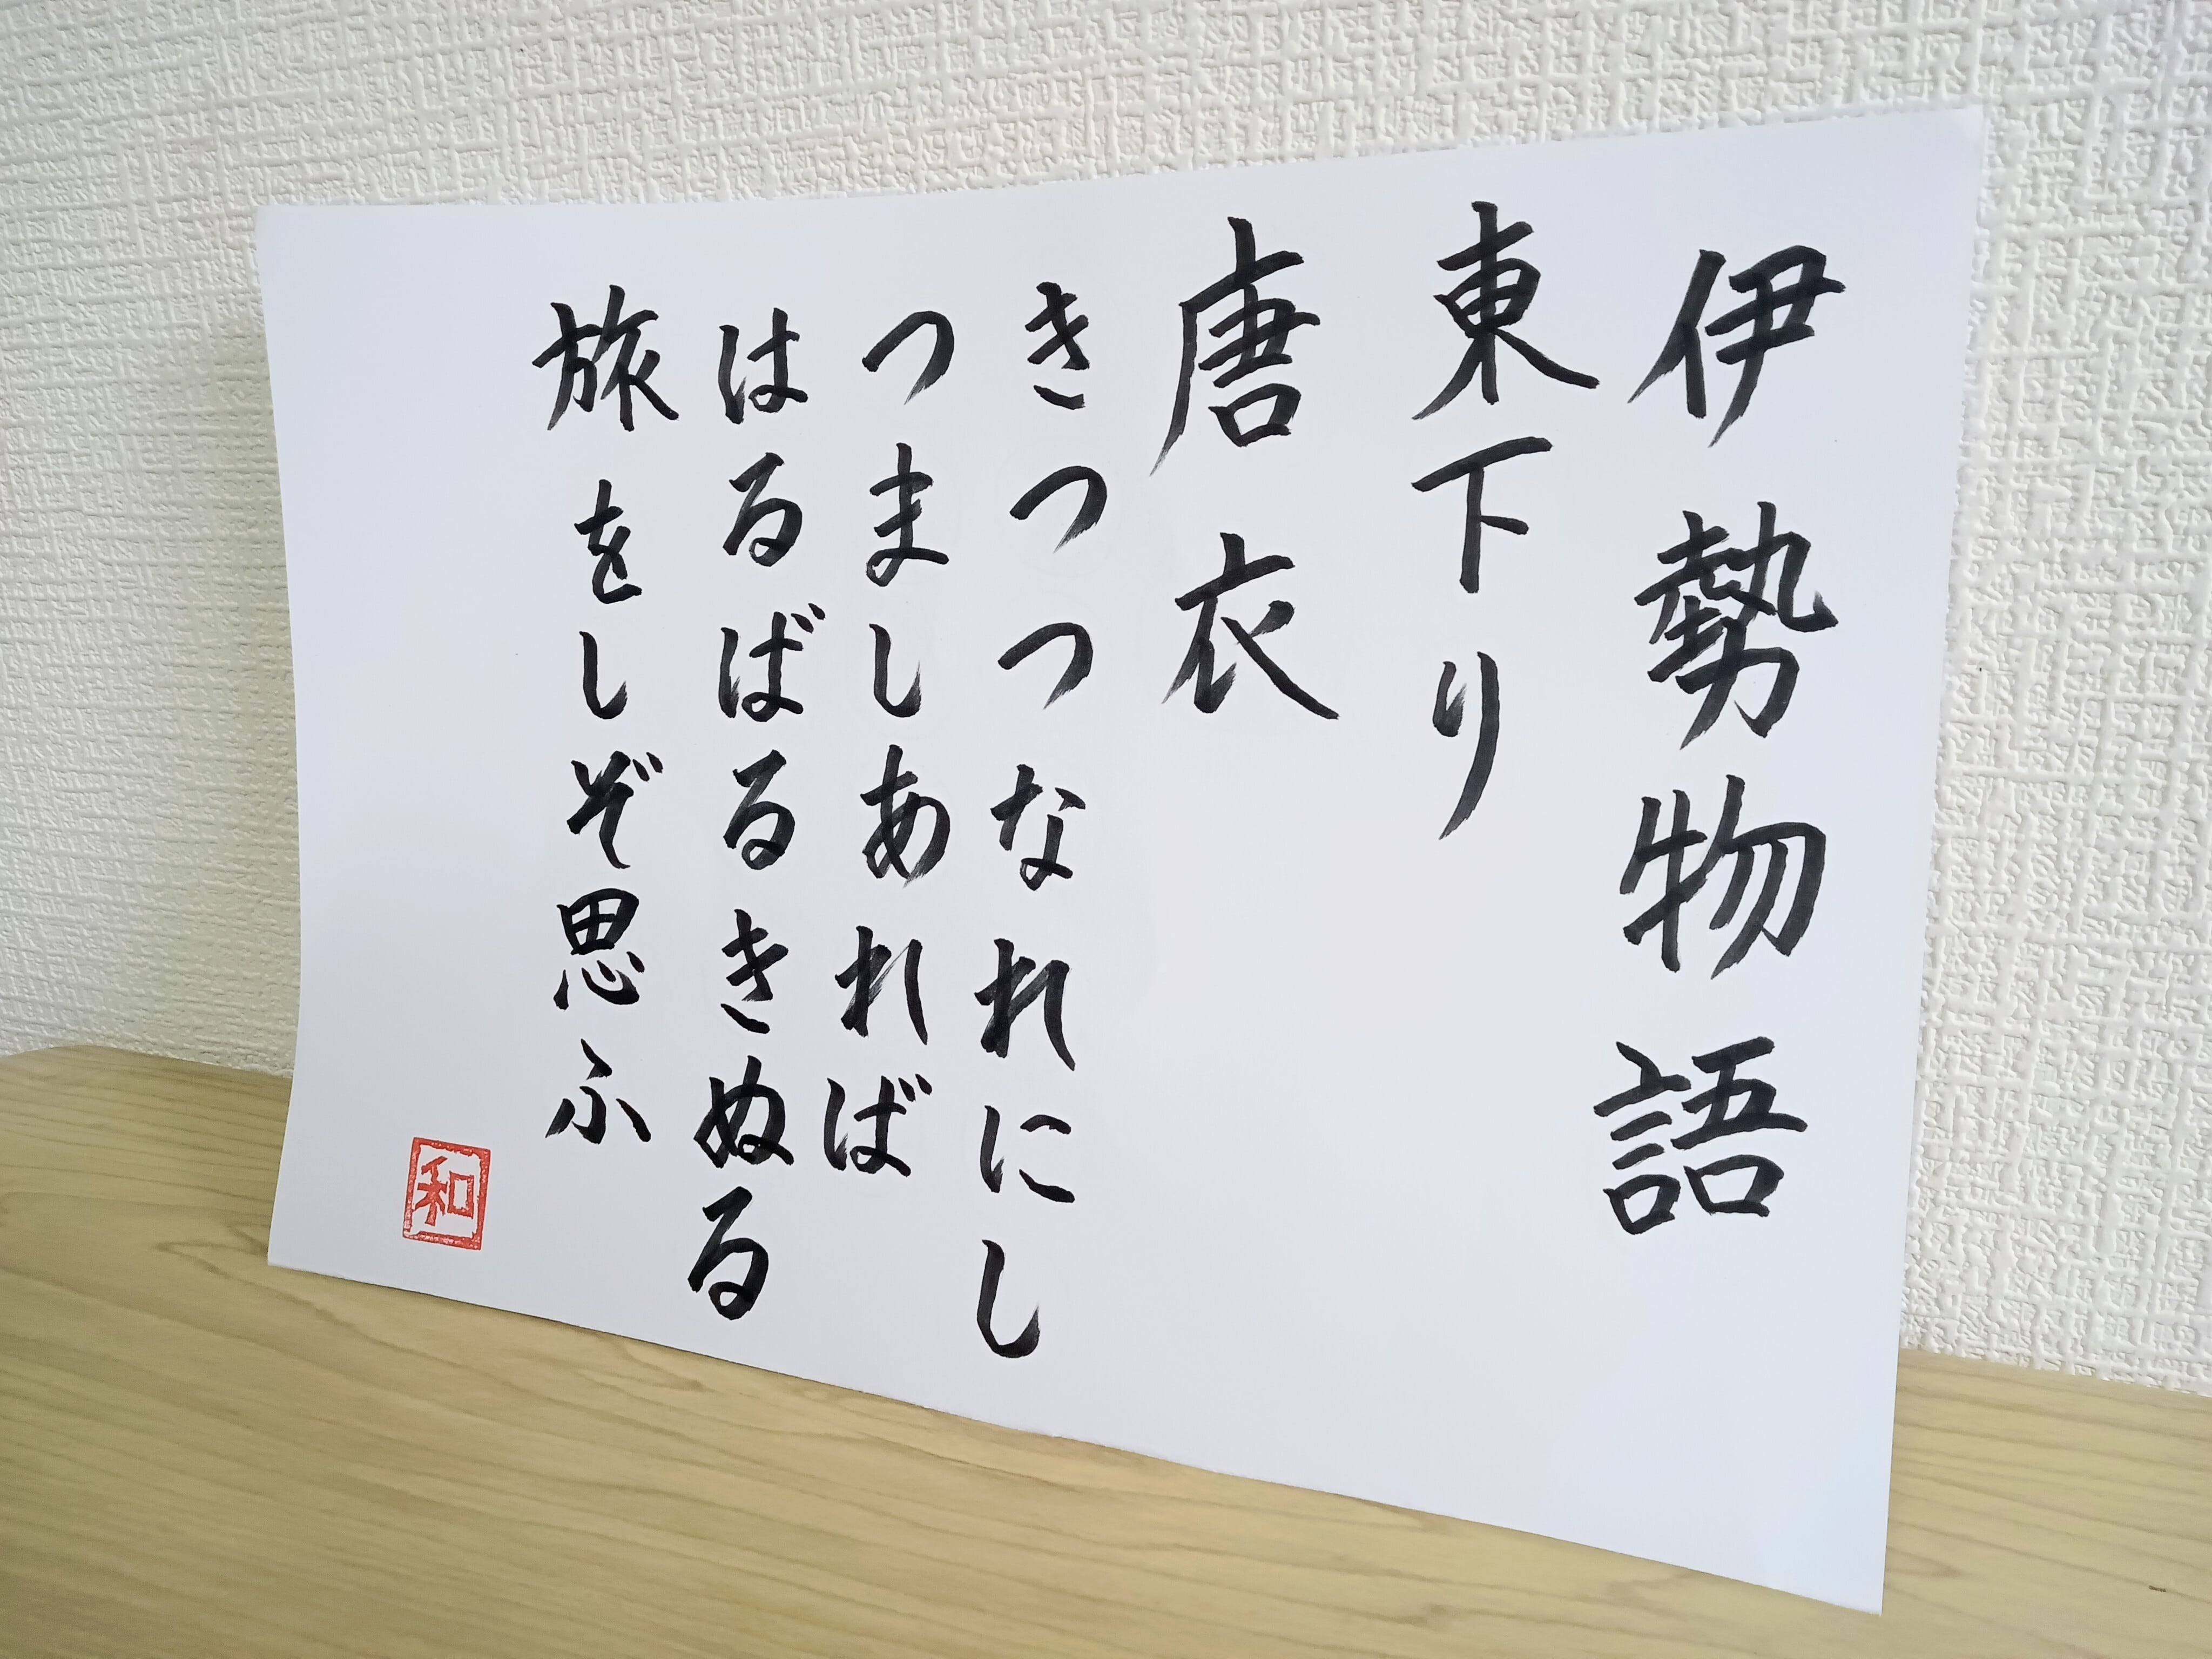 伊勢物語
東下り
唐衣
きつつなれにし
つましあれば
はるばるきぬる
旅をしぞ思ふ
和